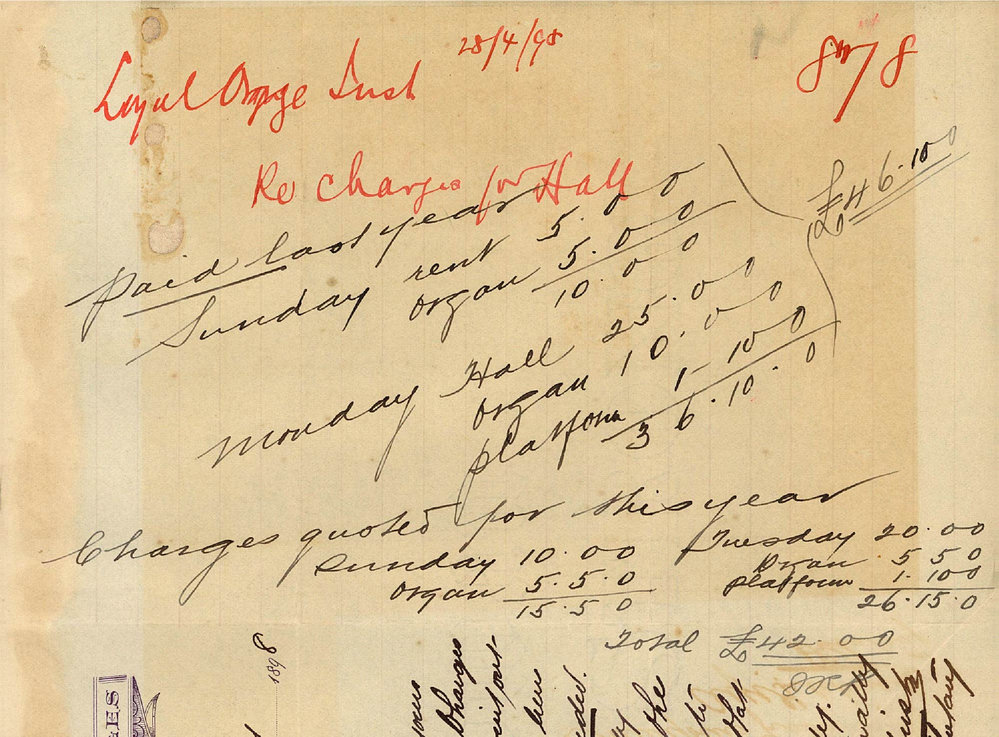 28/4/98
Loyal Orange Inst
8m/8
Re Charges for Hall
paid last year
Sunday rent 5.0 0
organ 5.0 0
10.0 0
£46.10 0
Monday Hall 25.0 0
Organ 10.0 0
platform 1-10 0
36.10.0
Charges quoted for this year
Sunday 10.00
Organ 5.5.0
15.5 0
Tuesday 20.00
Organ 5 5 0
platform 1.100
26.15.0
Total £42.00
1898
&ES
Charges
been
the
to
that